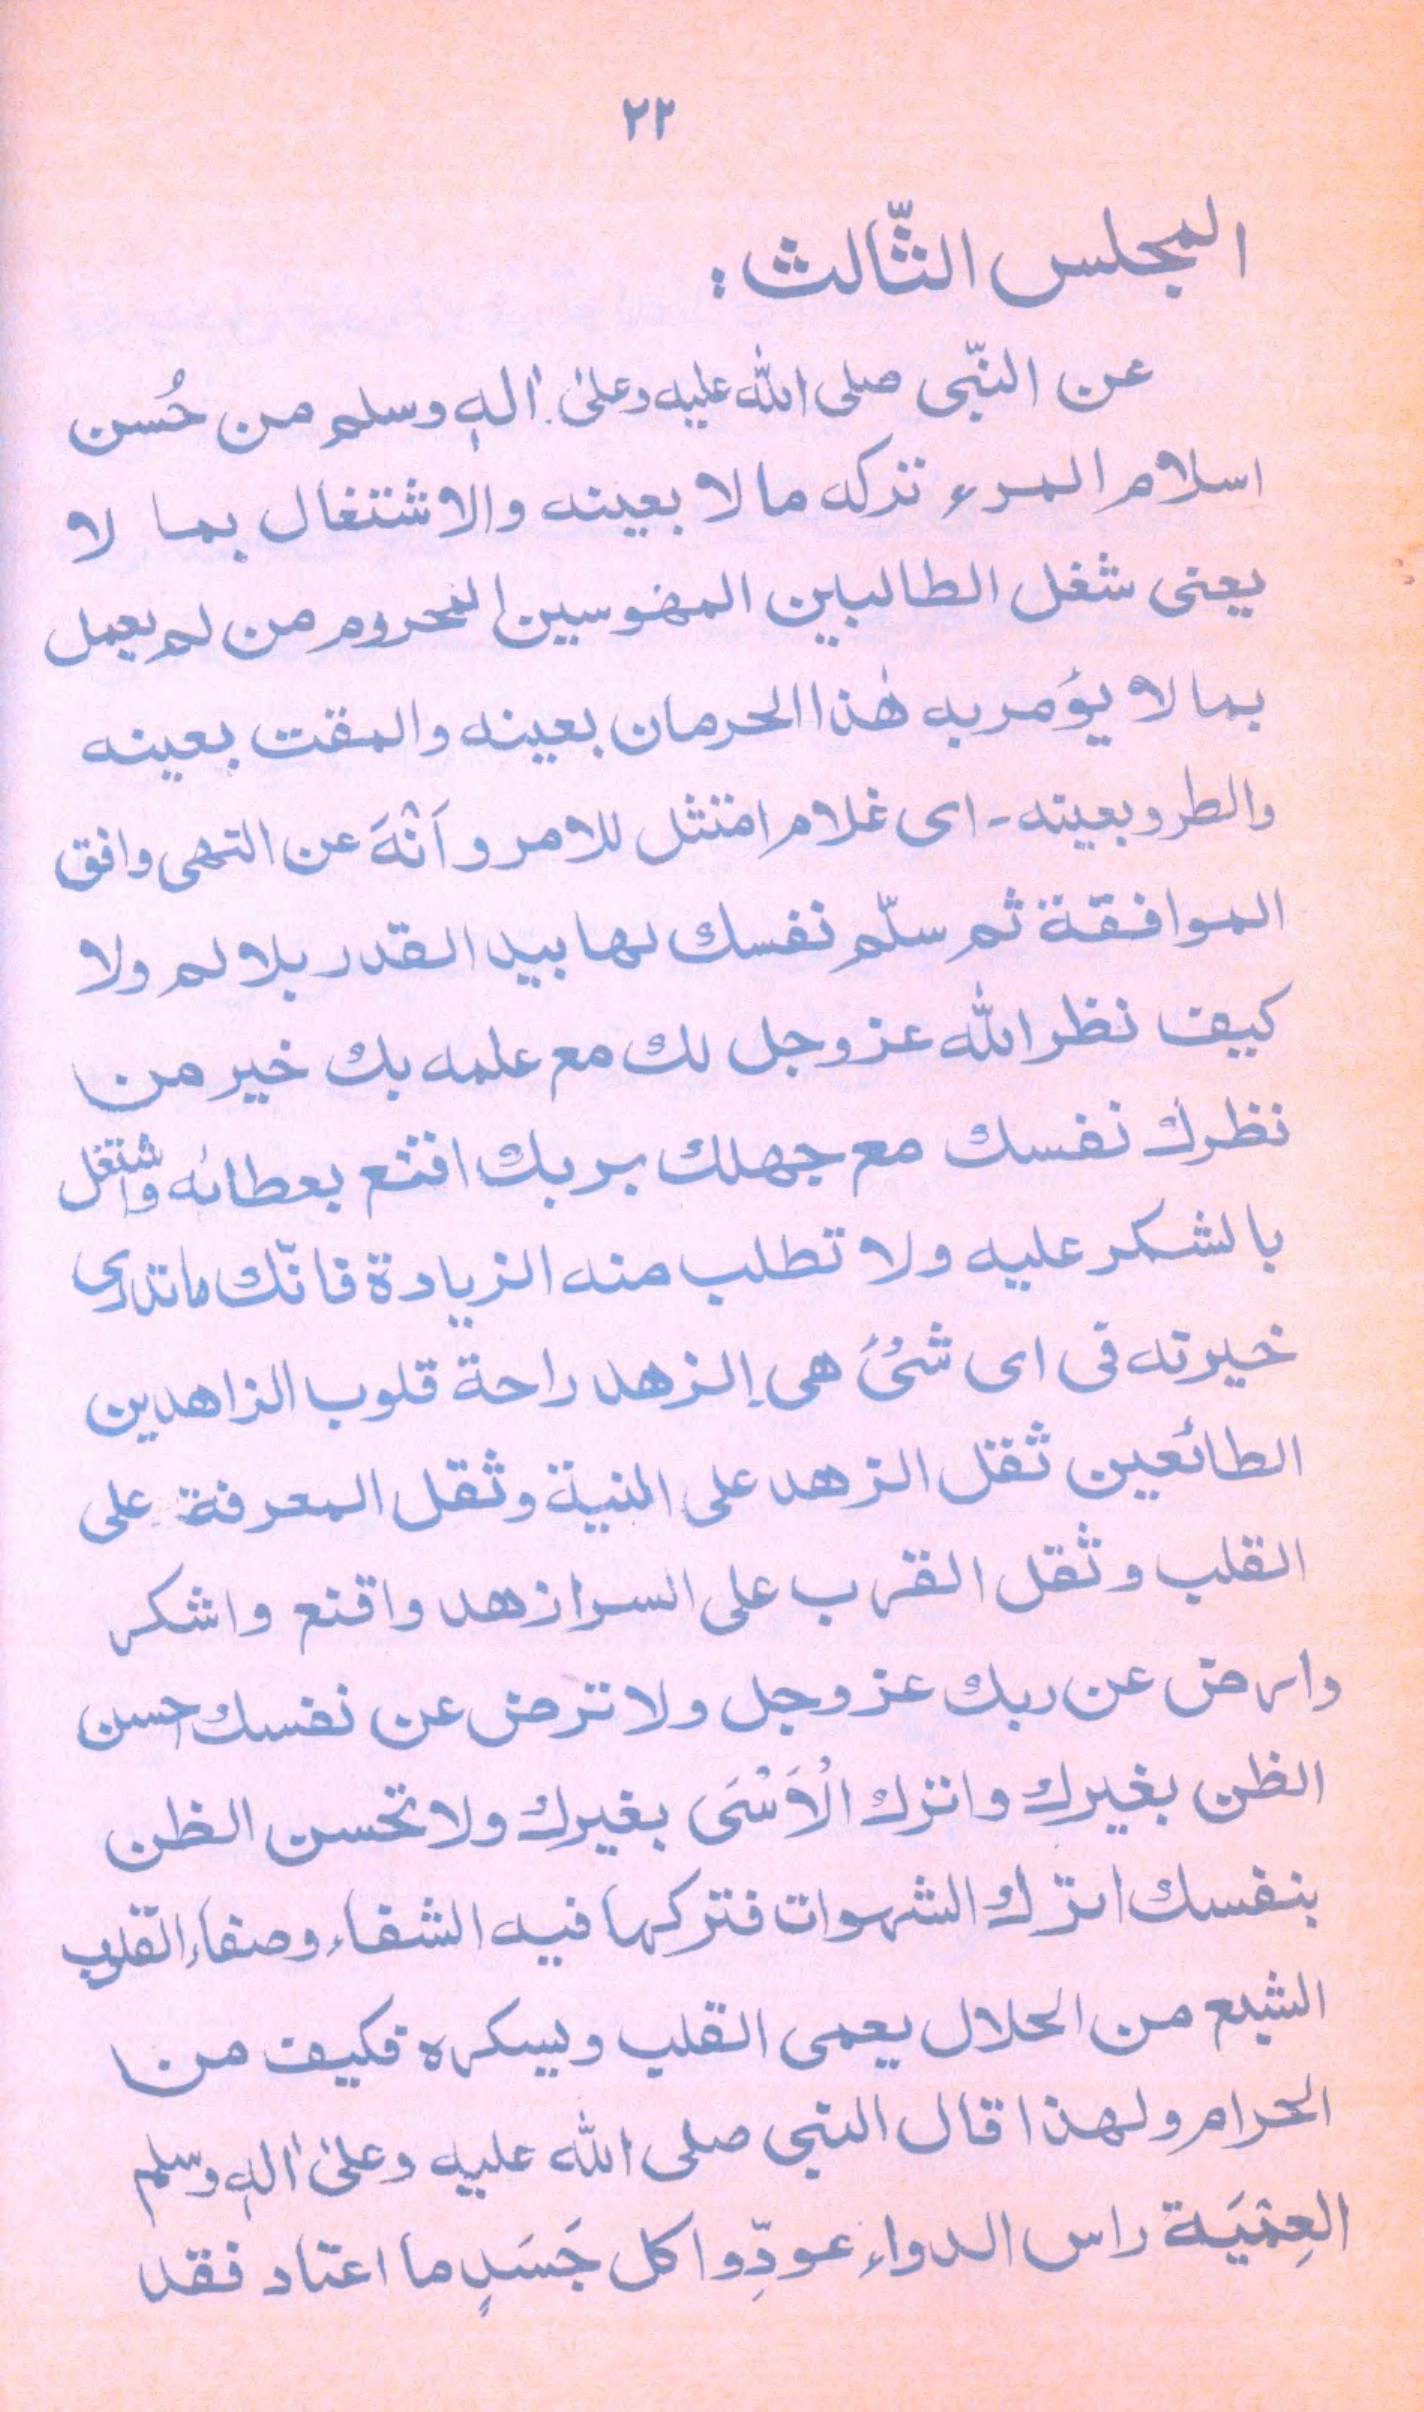 ٢٢
المجلس الثّالث:
عن النّبى صلى الله عليه وعلىٰ اٰلهٖ وسلم من حُسن
اسلام المرء تركه ما لا بعينه والاشتغال بما لا
يعنى شغل الطالبين المهوسين المحروم من لم يعمل
بما لا يؤمر به هٰذا الحرمان بعينه والمقت بعينه
والطرو بعينه - اى غلام امتثل للامر وَانْهَ عن النهى وافق
الموافقة ثم سلّم نفسك لها بيد القدر بلا لم ولا
كيف نظر الله عز وجل لك مع علمه بك خير من
نظرك نفسك مع جهلك بربك اقنع بعطائه واشتغل
بالشكر عليه ولا تطلب منه الزيادة فانّك ما تدرى
خيرته فى اى شئ هى الزهد راحة قلوب الزاهدين
الطائعين ثقل الزهد على النية وثقل المعرفة على
القلب وثقل القرب على السر ازهد واقنع واشكر
وارض عن ربك عز وجل ولا ترض عن نفسك احسن
الظن بغيرك واترك الْاَسْىَ بغيرك ولا تحسن الظن
بنفسك اترك الشهوات فتركها فيه الشفاء وصفاء القلوب
الشبع من الحلال يعمى القلب ويسكره فكيف من
الحرام ولهذا قال النبى صلى الله عليه وعلىٰ اٰلهٖ وسلم
العِمْيَة راس الدواء عودِّوا كل جَسَدٍ ما اعتاد فقد